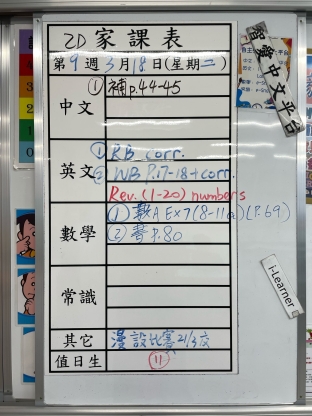 2D 家課表
第 9 週 3 月 18 日(星期二)
中文
① 補p.44-45
英文
① RB corr.
② WB P.17-18+corr.
Rev. (1-20) numbers
數學
① 數A Ex7(8-11a)(P.69)
② 書P.80
常識
其它
漫設比賽21/3交
值日生
⑪
智愛中文平台
i-Learner